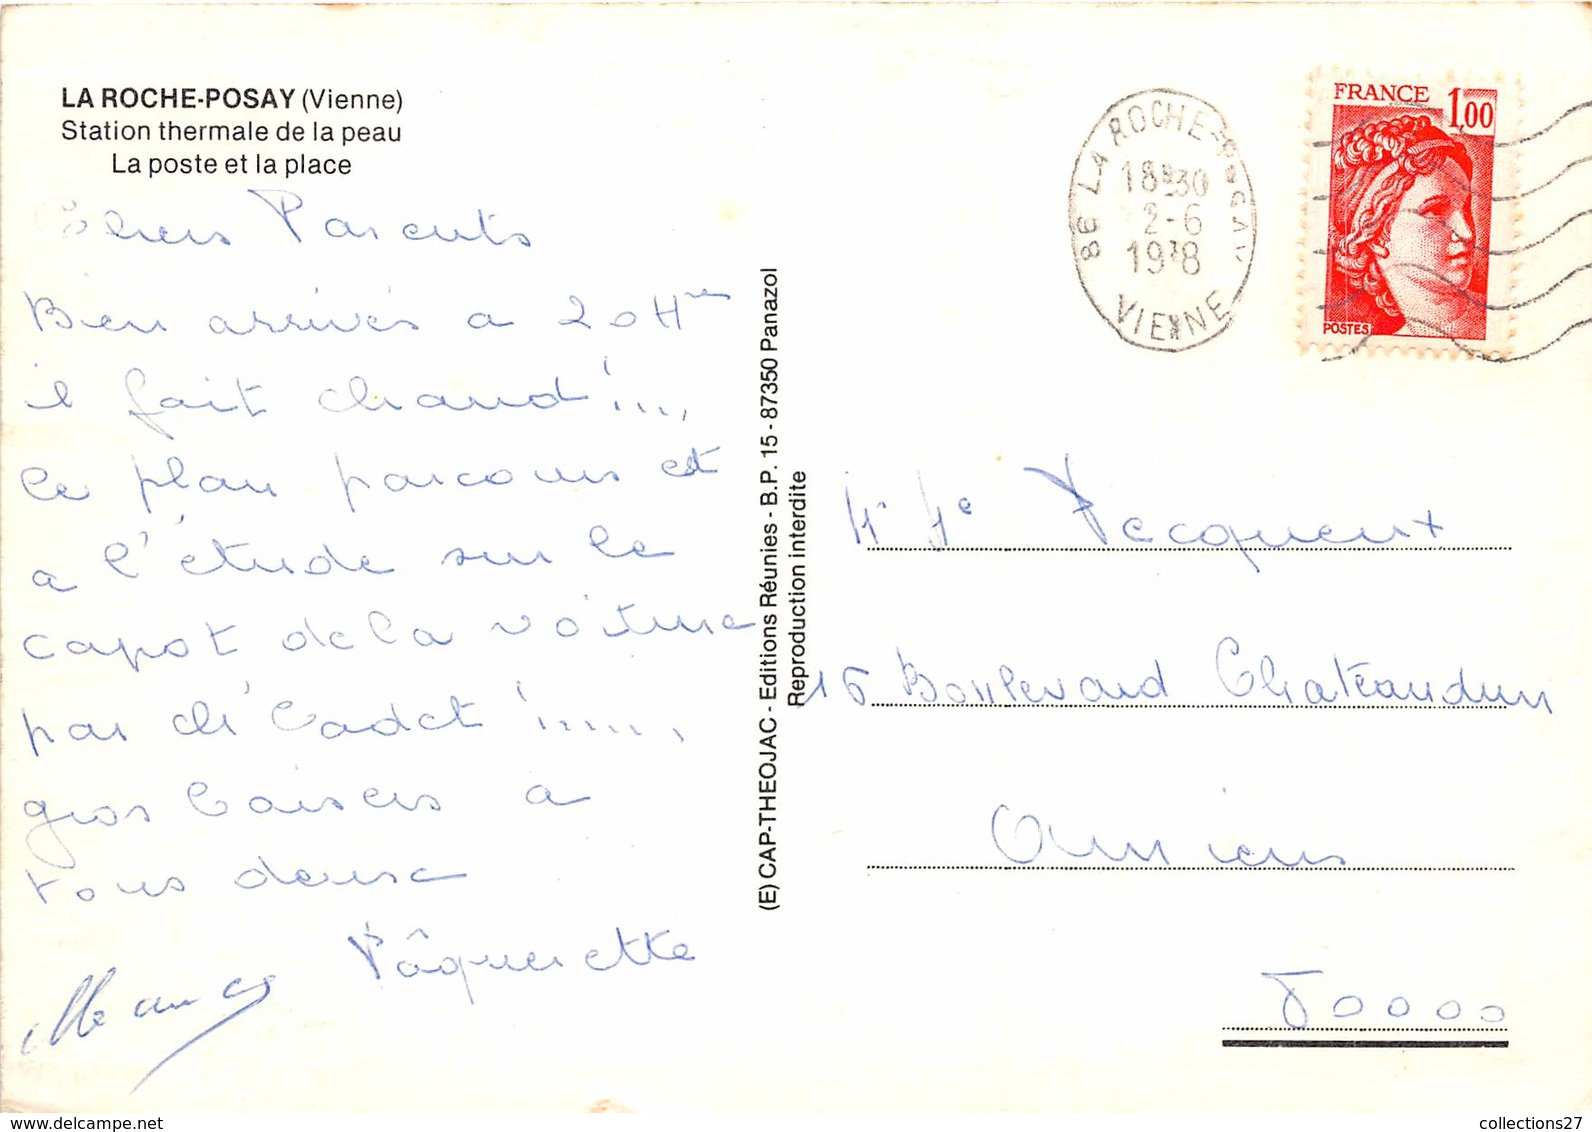 LA ROCHE-POSAY (Vienne)
Station thermale de la peau
La poste et la place
Chers Parents
Bien arrivés a 20 Hres
il fait chaud !...,
le plan parcours est
a l'étude sur le
capot de la voiture
par l'Cadet !.....,
gros baisers a
tous deux
Pâquerette
(E) CAP-THEOJAC - Editions Réunies - B.P. 15 - 87350 Panazol
Reproduction Interdite
86 LA ROCHE-POSAY
18H30
2-6
1978
VIENNE
FRANCE 1,00
POSTES
Mr Me Pecqueux
16 Boulevard Chateaudun
Amiens
80000
collections27